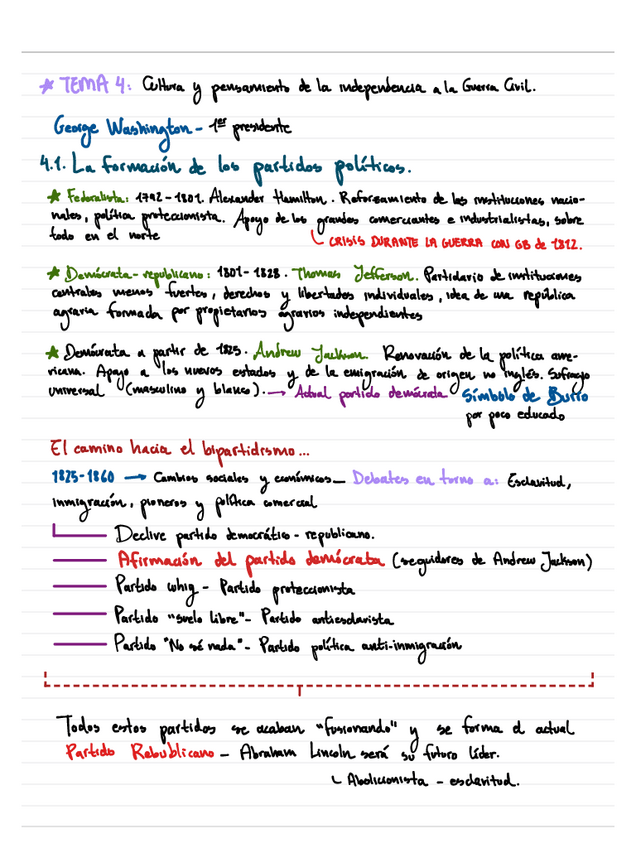 * TEMA 4: Cultura y pensamiento de la independencia a la Guerra Civil.
George Washington - 1er presidente
4.1. La formación de los partidos políticos.
* Federalista: 1792-1801. Alexander Hamilton. Reforzamiento de las instituciones nacio-
nales, política proteccionista. Apoyo de los grandes comerciantes e industrialistas, sobre
todo en el norte
CRISIS DURANTE LA GUERRA CON GB de 1812.
* Demócrata-republicano: 1801-1828. Thomas Jefferson. Partidario de instituciones
centrales menos fuertes, derechos y libertades individuales, idea de una república
agraria formada por propietarios agrarios independientes
* Demócrata a partir de 1825. Andrew Jackson. Renovación de la política ame-
ricana. Apoyo a los nuevos estados y de la emigración de origen no inglés. Sufragio
universal (masculino y blanco). → Actual partido demócrata Símbolo de Burro
por poco educado
El camino hacia el bipartidismo...
1825-1860 → Cambios sociales y económicos_ Debates en torno a: Esclavitud,
inmigración, pioneros y política comercial
Declive partido democrático-republicano.
Afirmación del partido demócrata (seguidores de Andrew Jackson)
Partido whig - Partido proteccionista
Partido "suelo libre" - Partido antiesclavista
Partido "No sé nada" - Partido política anti-inmigración
Todos estos partidos se acaban "fusionando" y se forma el actual
Partido Republicano - Abraham Lincoln será su futuro líder.
Abolicionista - esclavitud.